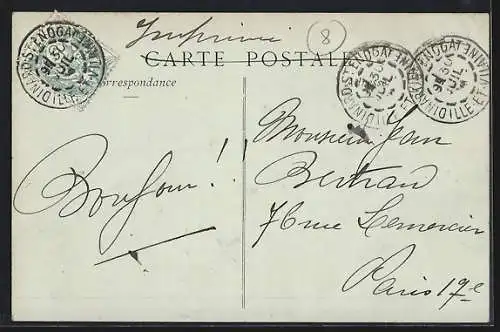 Imprimé
8
CARTE POSTALE
Correspondance
DINARD ST ENOGAT ILLE-ET-VILAINE
DINARD ST ENOGAT ILLE-ET-VILAINE
DINARD ST ENOGAT ILLE-ET-VILAINE
Bonjour!!
Monsieur Jean
Bertrau
76 rue Lemercier
Paris 17e